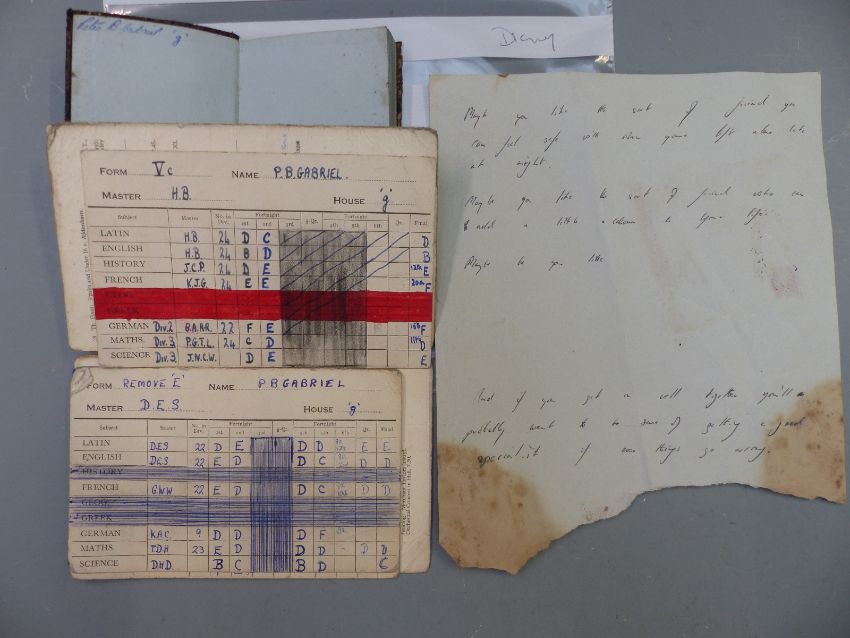 Peter B Gabriel 'g'
Diary
FORM Vc NAME P.B.GABRIEL.
MASTER H.B. HOUSE 'g'
Subject Master No. in Div. Fortnight Fortnight Final
1st 2nd 3rd ½-Qr. 4th 5th Qr.
LATIN H.B. 24 D C D
ENGLISH H.B 24 B D B
HISTORY J.C.P. 24 D E E
FRENCH K.J.G. 24 E E F
GERMAN Div.2 G.A.R.R. 22 F E F
MATHS. Div.3 P.G.T.L. 24 C D D
SCIENCE Div.3 J.N.C.W. D E E
FORM REMOVE 'E' NAME P B GABRIEL
MASTER D.E.S HOUSE 'g'
Subject Master No. in Div. Fortnight Fortnight
1st 2nd 3rd ½-Qr. 4th 5th Qr. Final
LATIN D.E.S 22 D E D D E E
ENGLISH DES 22 E D D C D D
HISTORY
FRENCH G.W.W 22 E D D C D D
GEOG.
GREEK
GERMAN K.A.C. 9 D D D F
MATHS T.D.H 23 E D D D - D D
SCIENCE D.H.D. B C B D C
Maybe you like the sort of friend you
can feel safe with when you're left alone late
at night.
Maybe you like the sort of friend who can
add a little colour to your life.
Maybe be you like
And if you get on well together you'll
probably want to be sure of getting a good
special.it if ever things go wrong.